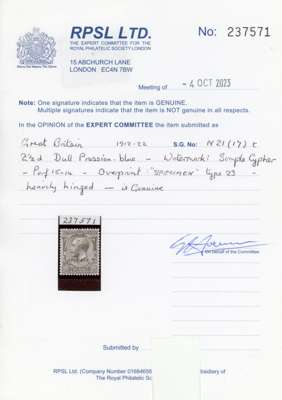 RPSL LTD.
THE EXPERT COMMITTEE FOR THE
ROYAL PHILATELIC SOCIETY LONDON
No: 237571
15 ABCHURCH LANE
LONDON EC4N 7BW
Meeting of - 4 OCT 2023
Note: One signature indicates that the item is GENUINE.
Multiple signatures indicate that the item is NOT genuine in all respects.
In the OPINION of the EXPERT COMMITTEE the item submitted as
Great Britain 1912-22 S.G. No: N21(17) t
2½d Dull Prussian-blue - Watermark Simple Cypher
- Perf 15-14 - Overprint "SPECIMEN" type 23 -
heavily hinged - is Genuine
237571
On behalf of the Committee
Submitted by
RPSL Ltd. (Company Number subsidiary of
The Royal Philatelic